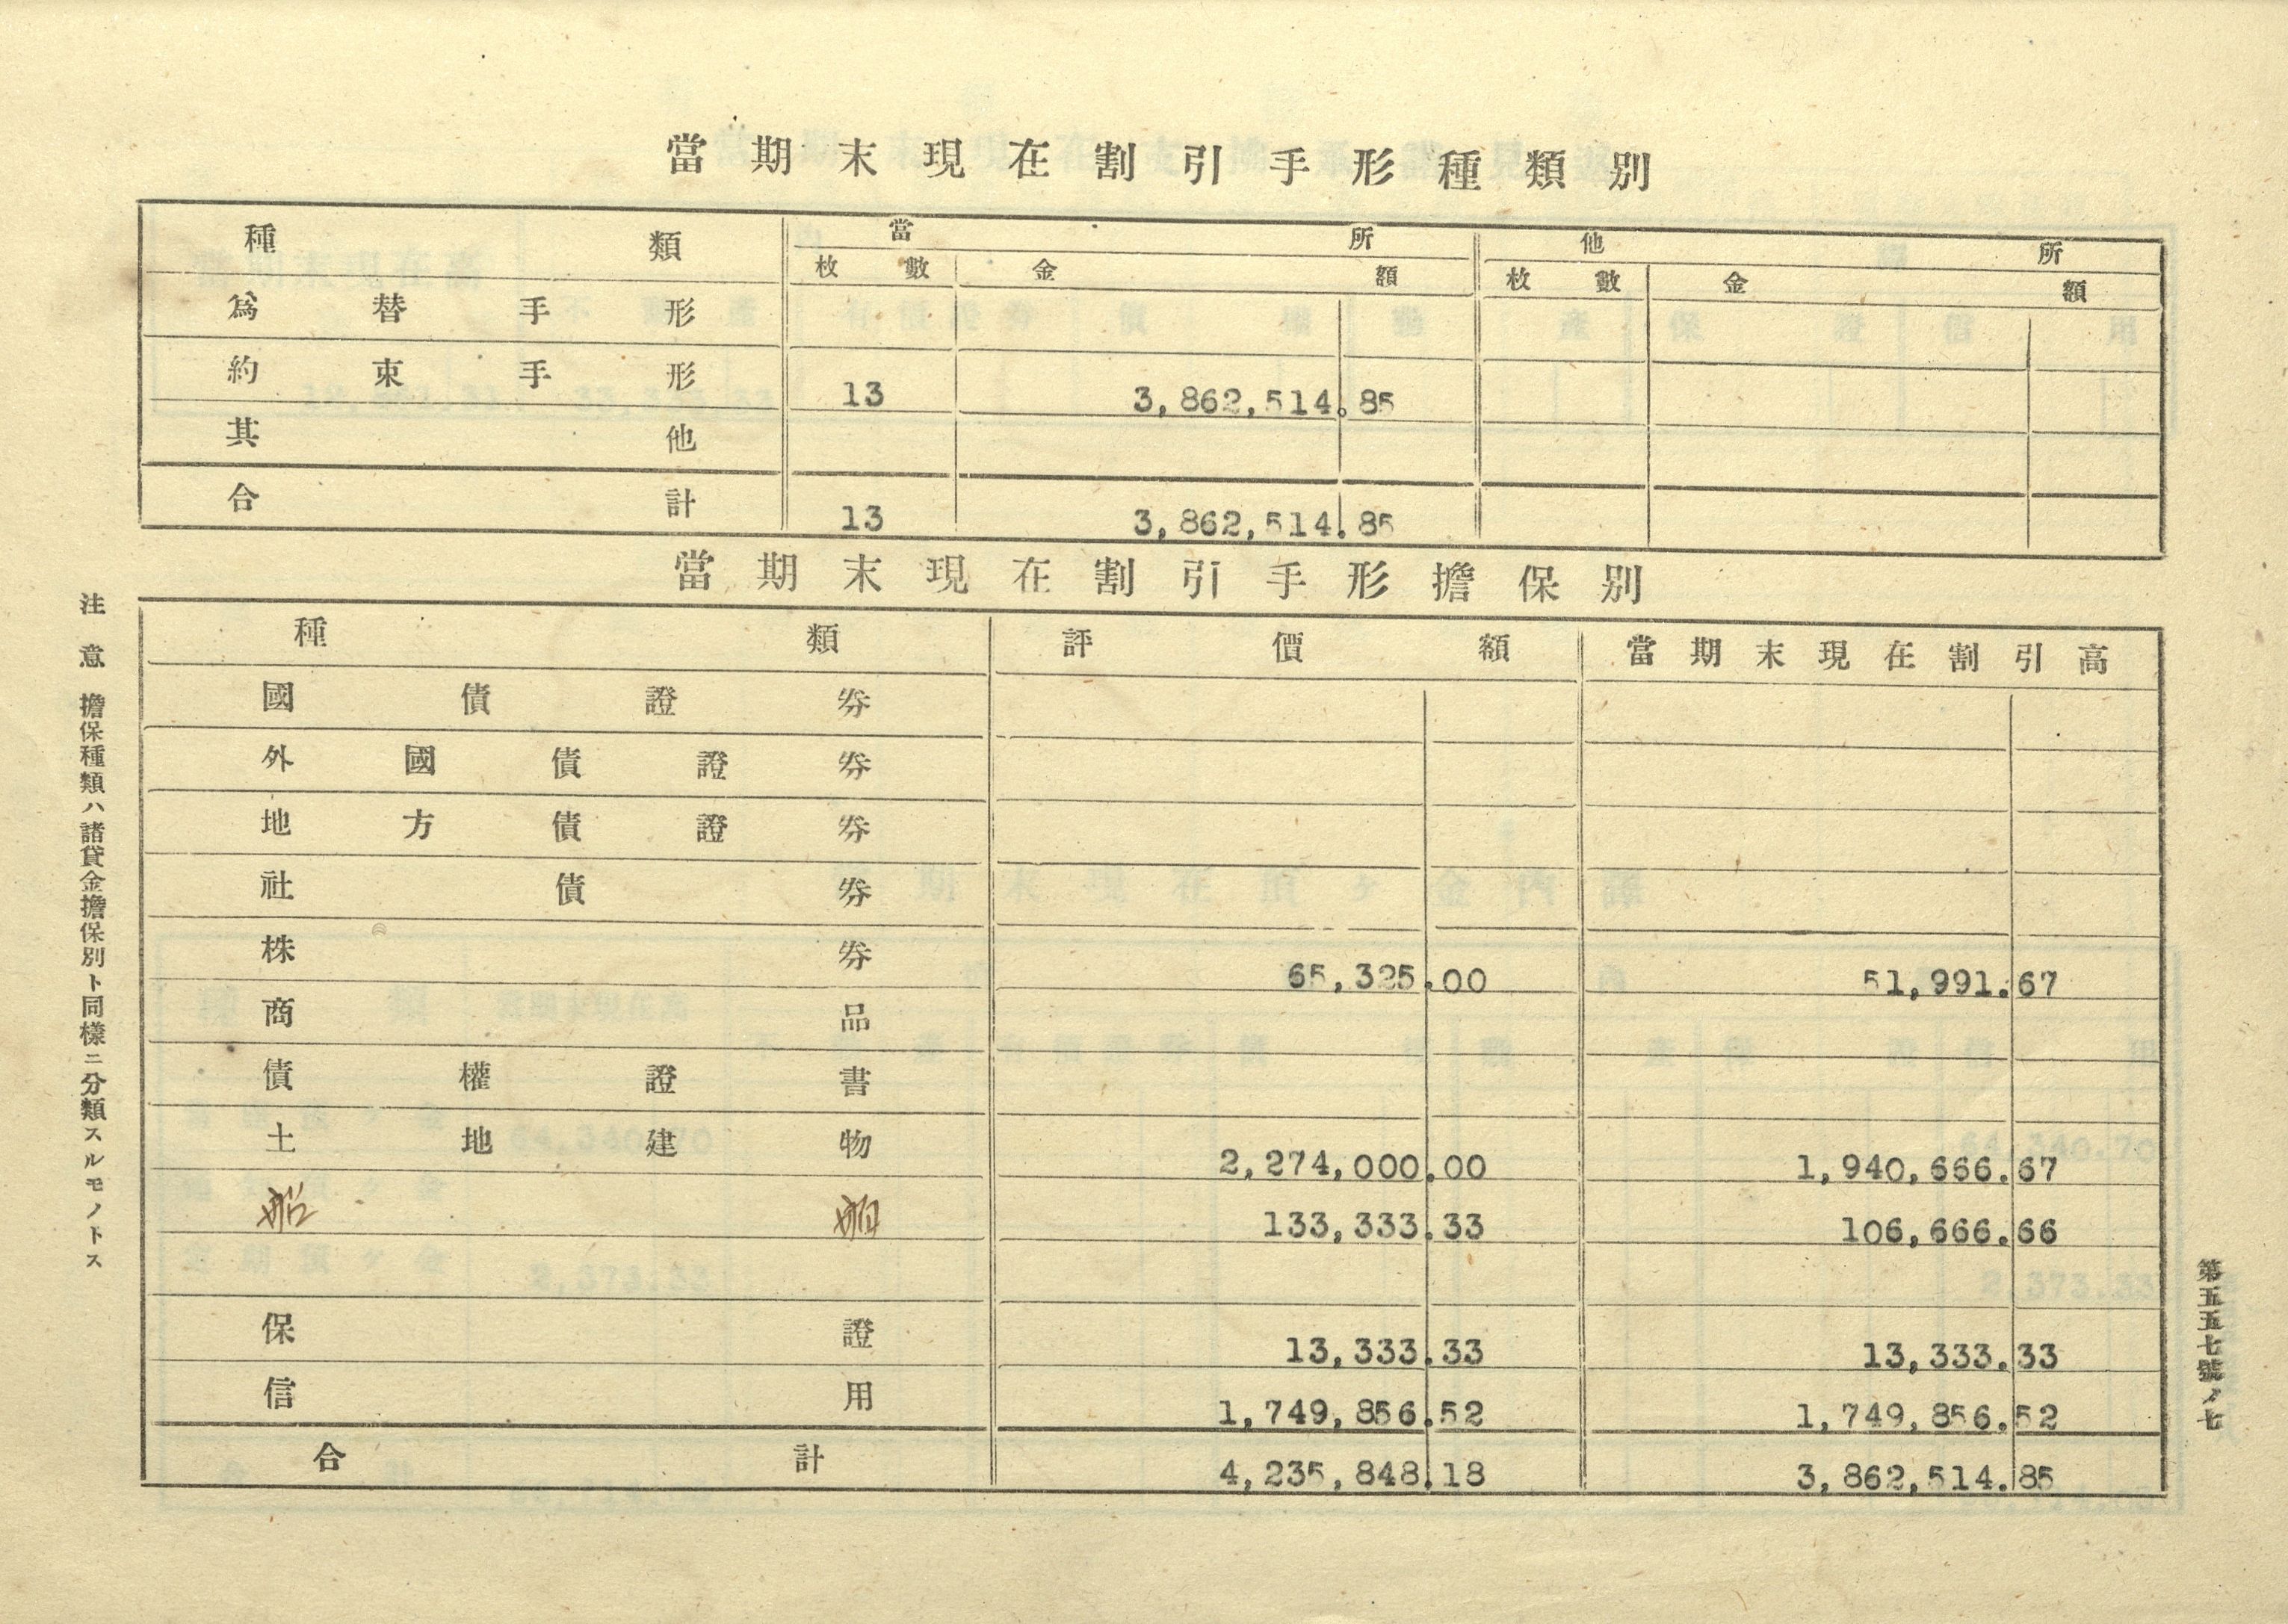 當期末現在割引手形種類別
種類 當所 他所
枚數 金額 枚數 金額
爲替手形
約束手形 13 3,862,514.85
其他
合計 13 3,862,514.85
當期末現在割引手形擔保別
種類 評價額 當期末現在割引高
國債證券
外國債證券
地方債證券
社債券
株券 65,325.00 51,991.67
商品
債權證書
土地建物 2,274,000.00 1,940,666.67
船舶 133,333.33 106,666.66
保證 13,333.33 13,333.33
信用 1,749,856.52 1,749,856.52
合計 4,235,848.18 3,862,514.85
注意 擔保種類ハ諸貸金擔保別ト同樣ニ分類スルモノトス
第五五七號ノ七